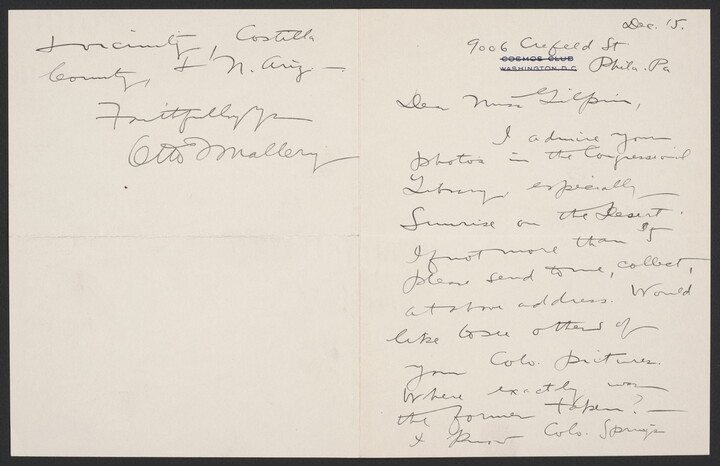 Dec. 15.
9006 Crefeld St
COSMOS CLUB
WASHINGTON, D.C. Phila. Pa
Dear Miss Gilpin,
I admire your
photos in the Congressional
Library, especially
Sunrise on the Desert.
If not more than $5
please send to me, collect,
at above address. Would
like to see others of
your Colo. pictures.
Where exactly was
the former taken? —
I know Colo. Springs
& vicinity, Costilla
County, & N. Ariz —
Faithfully yrs
Otto T Mallery